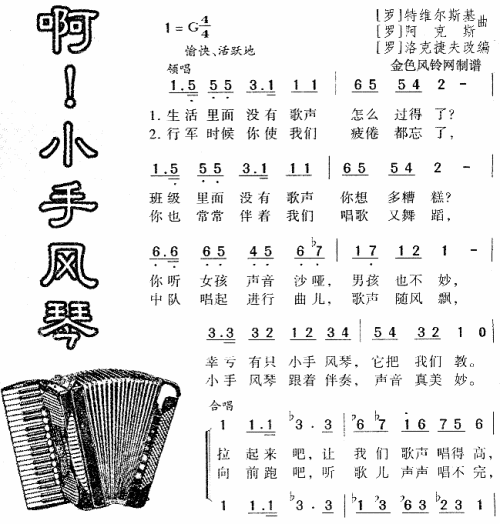 啊！小手风琴
1=G 4/4
愉快、活跃地
[罗]特维尔斯基曲
[罗]阿克斯
[罗]洛克捷夫改编
金色风铃网制谱
领唱
1.5 5 5 3.1 1 1 | 6 5 5 4 2 - |
1.生活 里面 没有 歌声 怎么 过得 了?
2.行军 时候 你使 我们 疲倦 都忘 了,
1.5 5 5 3.1 1 1 | 6 5 5 4 2 - |
班级 里面 没有 歌声 你想 多糟 糕?
你也 常常 伴着 我们 唱歌 又舞 蹈,
6.6 6 5 4 5 6 ♭7 | 1 7 1 2 1 - |
你听 女孩 声音 沙哑, 男孩 也不 妙,
中队 唱起 进行 曲儿, 歌声 随风 飘,
3.3 3 2 1 2 3 4 | 5 4 3 2 1 0 |
幸亏 有只 小手 风琴, 它把 我们 教。
小手 风琴 跟着 伴奏, 声音 真美 妙。
合唱
1 1.1 ♭3 . 3 | ♭6 ♭7 1 6 7 5 6 |
拉 起来 吧, 让 我们 歌声 唱得 高,
向 前跑 吧, 听 歌儿 声声 唱不 完,
1 1.1 ♭3 . 3 | ♭1 ♭3 ♭6 3 ♭2 3 1 |